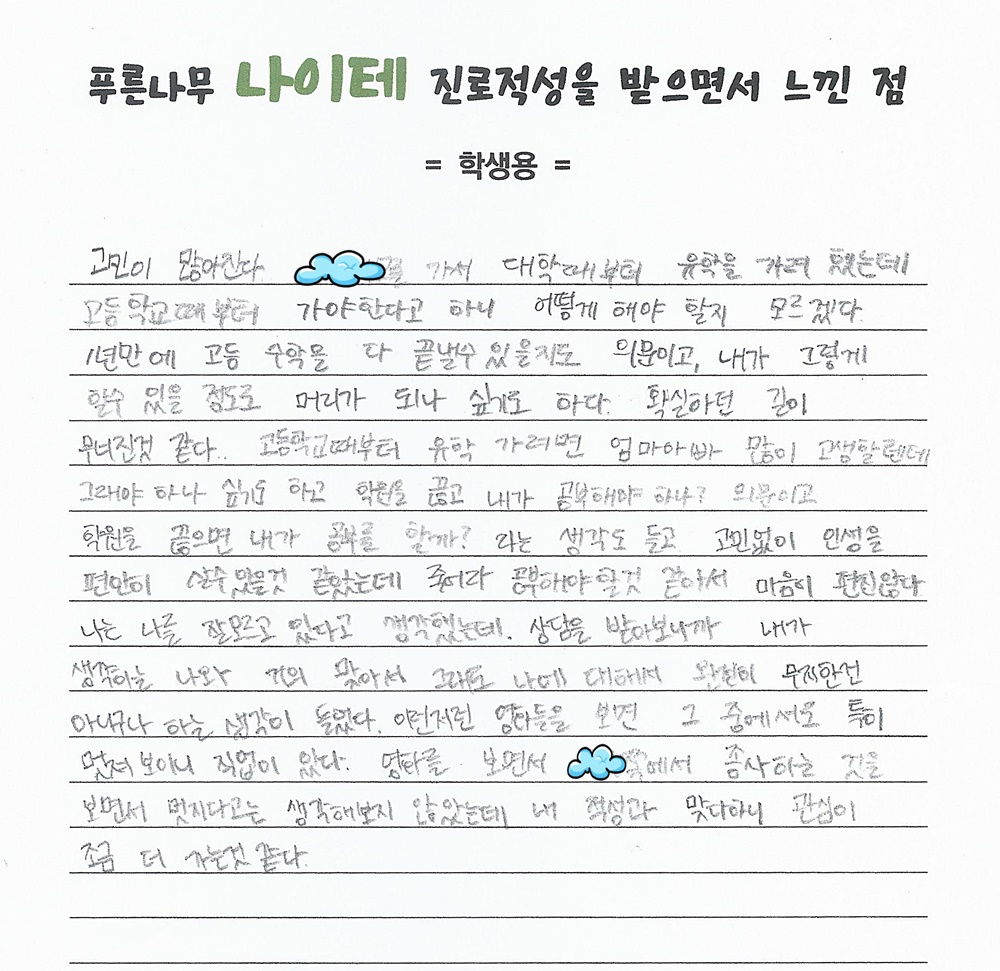 푸른나무 나이테 진로적성을 받으면서 느낀 점
= 학생용 =
고민이 많아진다. 가서 대학때부터 유학을 가려 했는데
고등학교때부터 가야한다고 하니 어떻게 해야 할지 모르겠다.
1년만에 고등 수학을 다 끝낼수 있을지도 의문이고, 내가 그렇게
할수 있을 정도로 머리가 되나 싶기도 하다. 확실하던 길이
무너진것 같다.. 고등학교때부터 유학 가려면 엄마아빠 많이 고생할텐데
그래야 하나 싶기도 하고 학원을 끊고 내가 공부해야 하나? 의문이고
학원을 끊으면 내가 공부를 할까? 라는 생각도 들고 고민없이 인생을
편안히 살수있을것 같았는데 죽어라 공부해야할것 같아서 마음이 편친않다
나는 나를 잘모르고 있다고 생각했는데. 상담을 받아보니까 내가
생각하는 나와 거의 맞아서 그래도 나에 대해서 완전히 무지한건
아니구나 하는 생각이 들었다. 이런저런 영타들을 보면 그 중에서도 특히
멋져보이니 직업이 있다. 영타를 보면서 쪽에서 종사하는 것을
보면서 멋지다고는 생각해보지 않았는데 내 적성과 맞다하니 관심이
조금 더 가는것 같다.